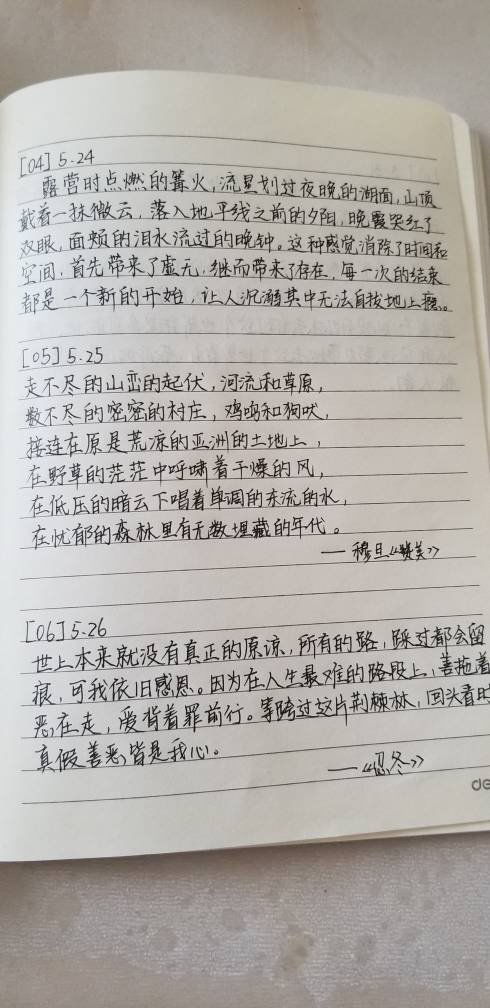 [04] 5.24
露营时点燃的篝火,流星划过夜晚的湖面,山顶
戴着一抹微云,落入地平线之前的夕阳,晚霞哭红了
双眼,面颊的泪水流过的晚钟。这种感觉消除了时间和
空间,首先带来了虚无,继而带来了存在,每一次的结束
都是一个新的开始,让人沉溺其中无法自拔地上瘾。
[05] 5.25
走不尽的山峦的起伏,河流和草原,
数不尽的密密的村庄,鸡鸣和狗吠,
接连在原是荒凉的亚洲的土地上,
在野草的茫茫中呼啸着干燥的风,
在低压的暗云下唱着单调的东流的水,
在忧郁的森林里有无数埋藏的年代。
——穆旦《赞美》
[06] 5.26
世上本来就没有真正的原谅,所有的路,踩过都会留
痕,可我依旧感恩。因为在人生最难的路段上,善拖着
恶在走,爱背着罪前行。等跨过这片荆棘林,回头看时
真假善恶皆是我心。
——《忍冬》
de